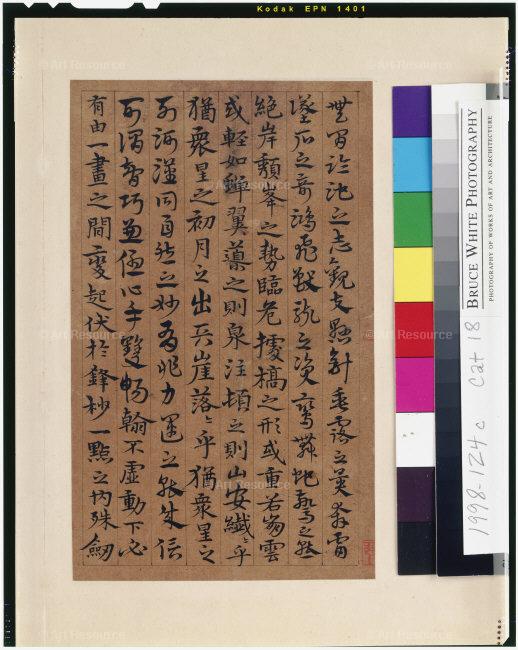 無間臨池之志觀夫懸針垂露之異奔雷
墜石之奇鴻飛獸駭之資鸞舞蛇驚之態
絕岸頹峯之勢臨危據槁之形或重若崩雲
或輕如蟬翼導之則泉注頓之則山安纖〻乎
猶衆星之初月之出天崖落〻乎猶衆星之
列河漢同自然之妙有非力運之能成信
可謂智巧兼優心手雙暢翰不虛動下必
有由一畫之間變起伏於鋒杪一點之內殊衂
Kodak EPN 1401
BRUCE WHITE PHOTOGRAPHY
PHOTOGRAPHY OF WORKS OF ART AND ARCHITECTURE
1998-124c Cat 18
© Art Resource